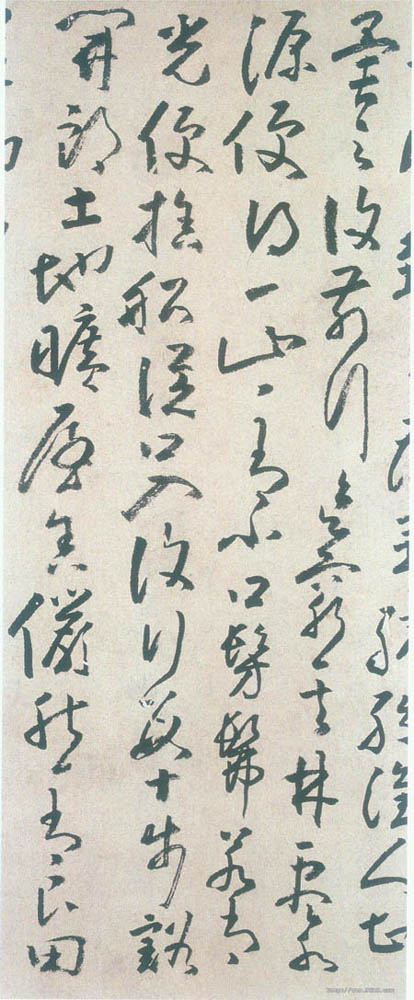 漁人甚
異之復前行欲窮其林盡水
源便得一山〻有小口髣髴若有
光便捨船從口入復行數十步豁
開朗土地曠屋舍儼然有良田